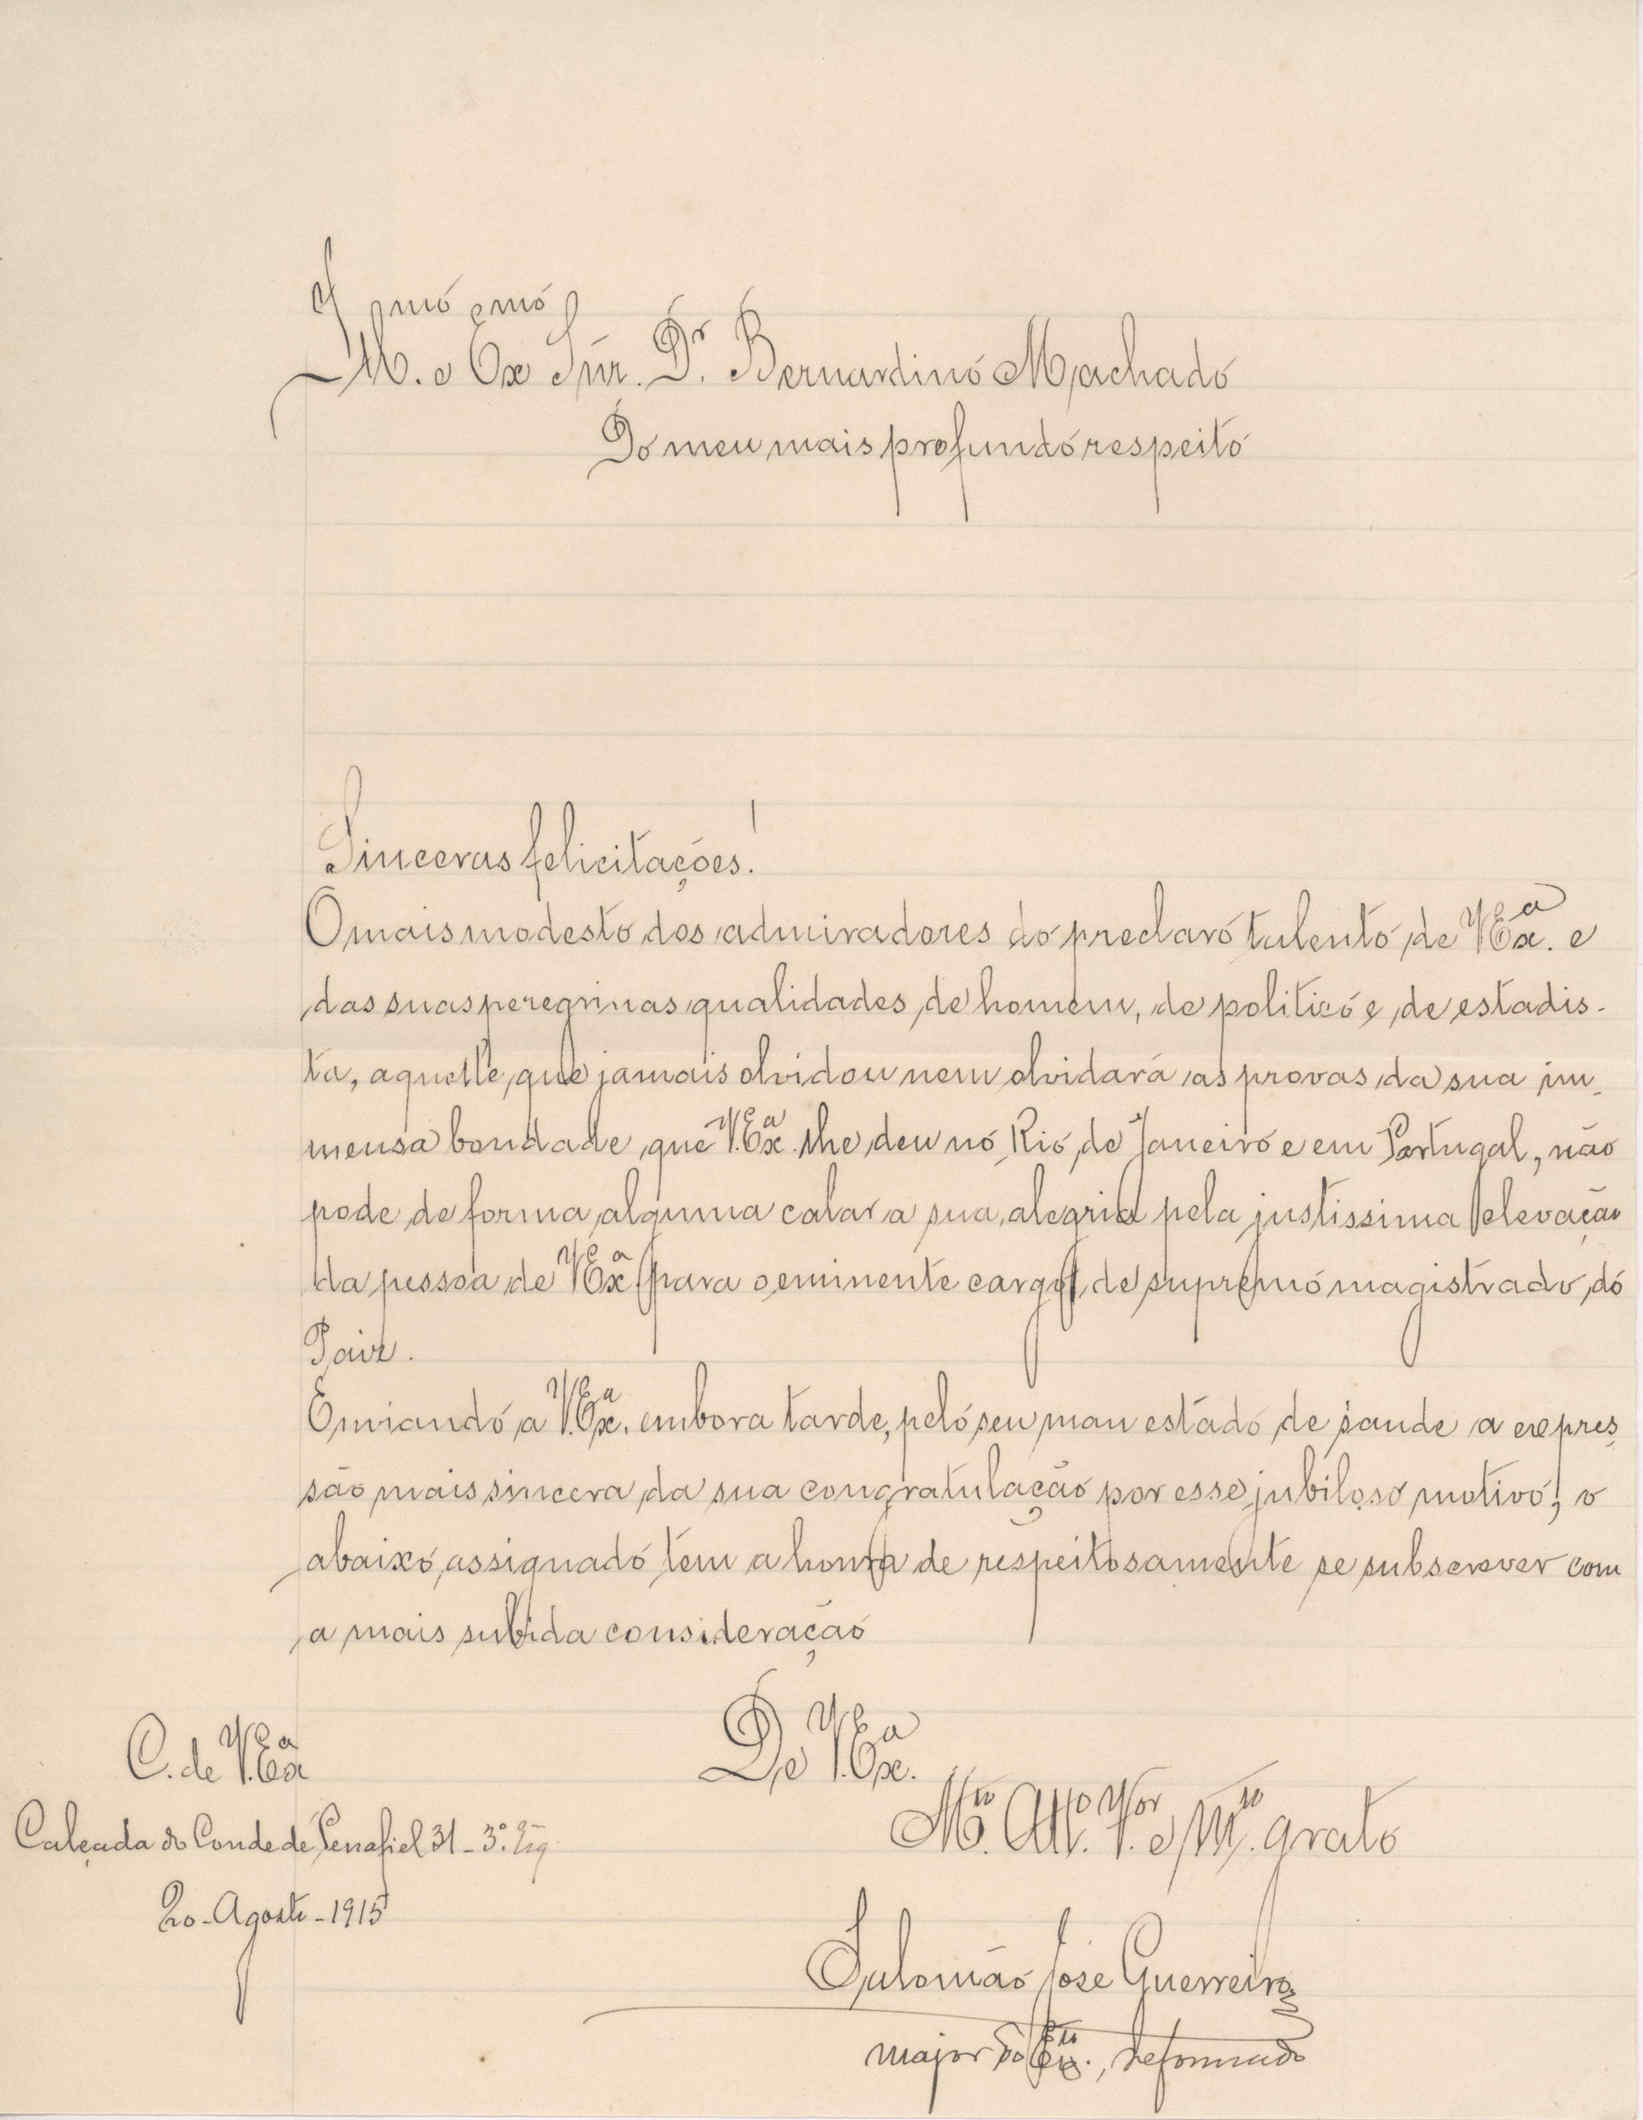 Ill.mo e Ex.mo Snr. Dr. Bernardino Machado
Do meu mais profundo respeito
Sinceras felicitações!
O mais modesto dos admiradores do preclaro talento de V. Ex.a e
das suas peregrinas qualidades de homem, de politico e de estadis-
ta, aquelle que jamais olvidou nem olvidará as provas da sua im-
mensa bondade que V. Ex.a lhe deu no Rio de Janeiro e em Portugal, não
pode de forma alguma calar a sua alegria pela justissima elevação
da pessoa de V. Ex.a para o eminente cargo de supremo magistrado do
Paiz.
Enviando a V. Ex.a, embora tarde, pelo seu mau estado de saude a expres-
são mais sincera da sua congratulação por esse jubiloso motivo, o
abaixo assignado tem a honra de respeitosamente se subscrever com
a mais subida consideração
De V. Ex.a
M.to Att.o V.or e M.to grato
Salomão José Guerreiro
major do Ex.to, reformado
C. de V. Ex.a
Calçada do Conde de Penafiel 31-3.º Esq.
20-Agosto-1915